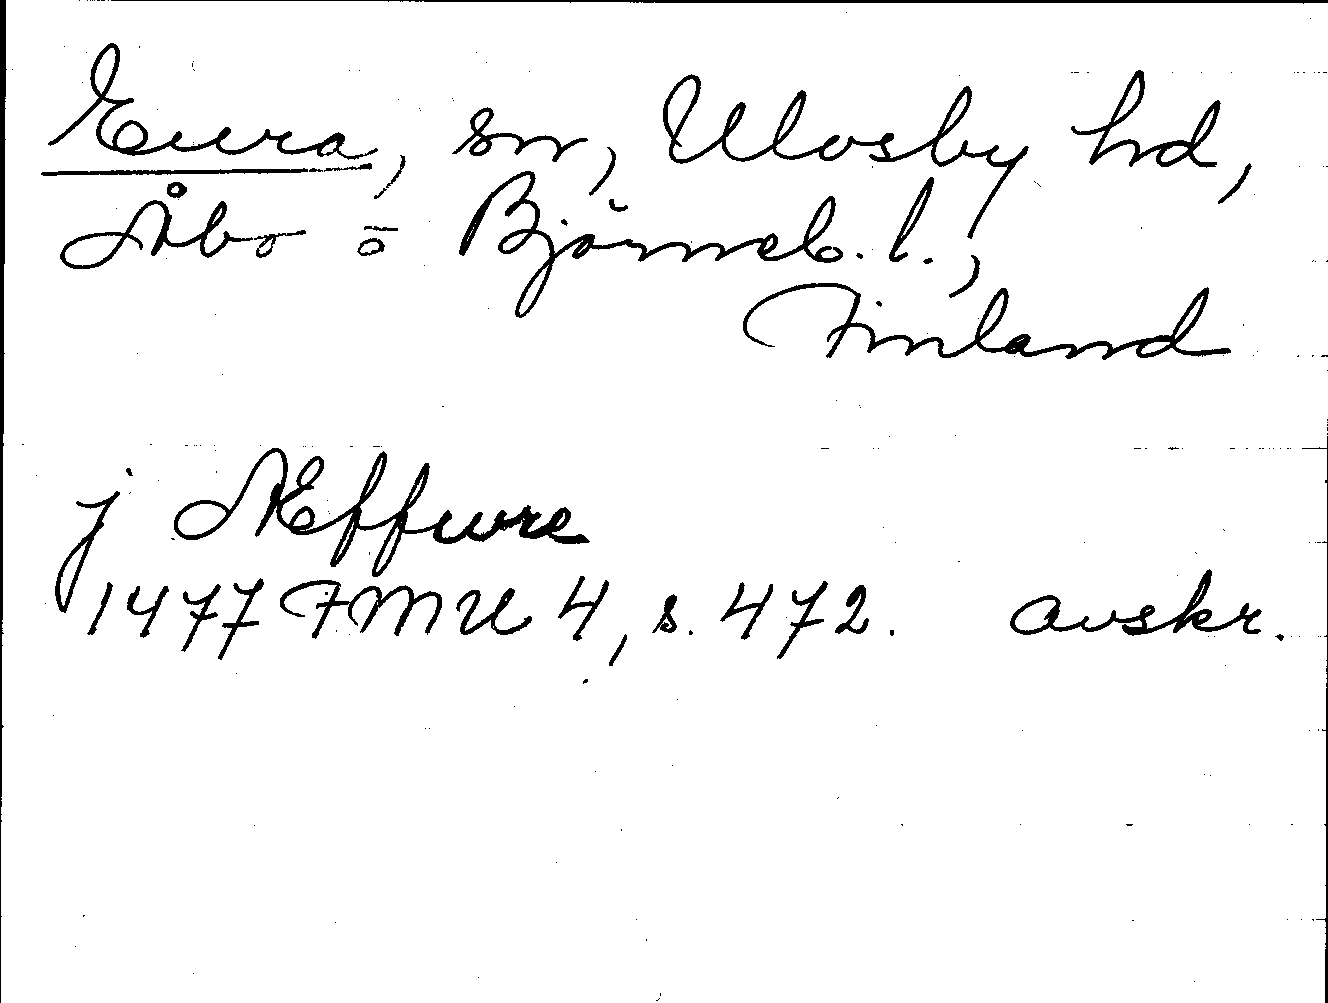 Eura, sn, Ulvsby hd,
Åbo o Björneb. l.,
Finland
j Æffwre
1477 FMU 4, s. 472. avskr.